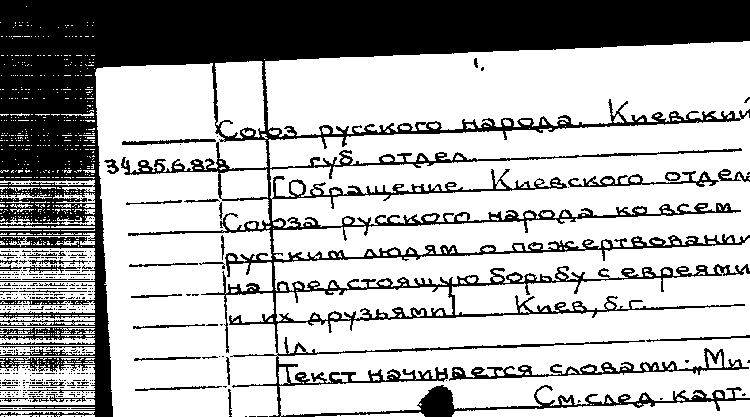 1.
Союз русского народа. Киевский
34.85.6.828 губ. отдел.
[Обращение Киевского отдела
Союза русского народа ко всем
русским людям о пожертвовании
на предстоящую борьбу с евреями
и их друзьями]. Киев, б.г.
1л.
Текст начинается словами: „Ми-
См. след. карт.